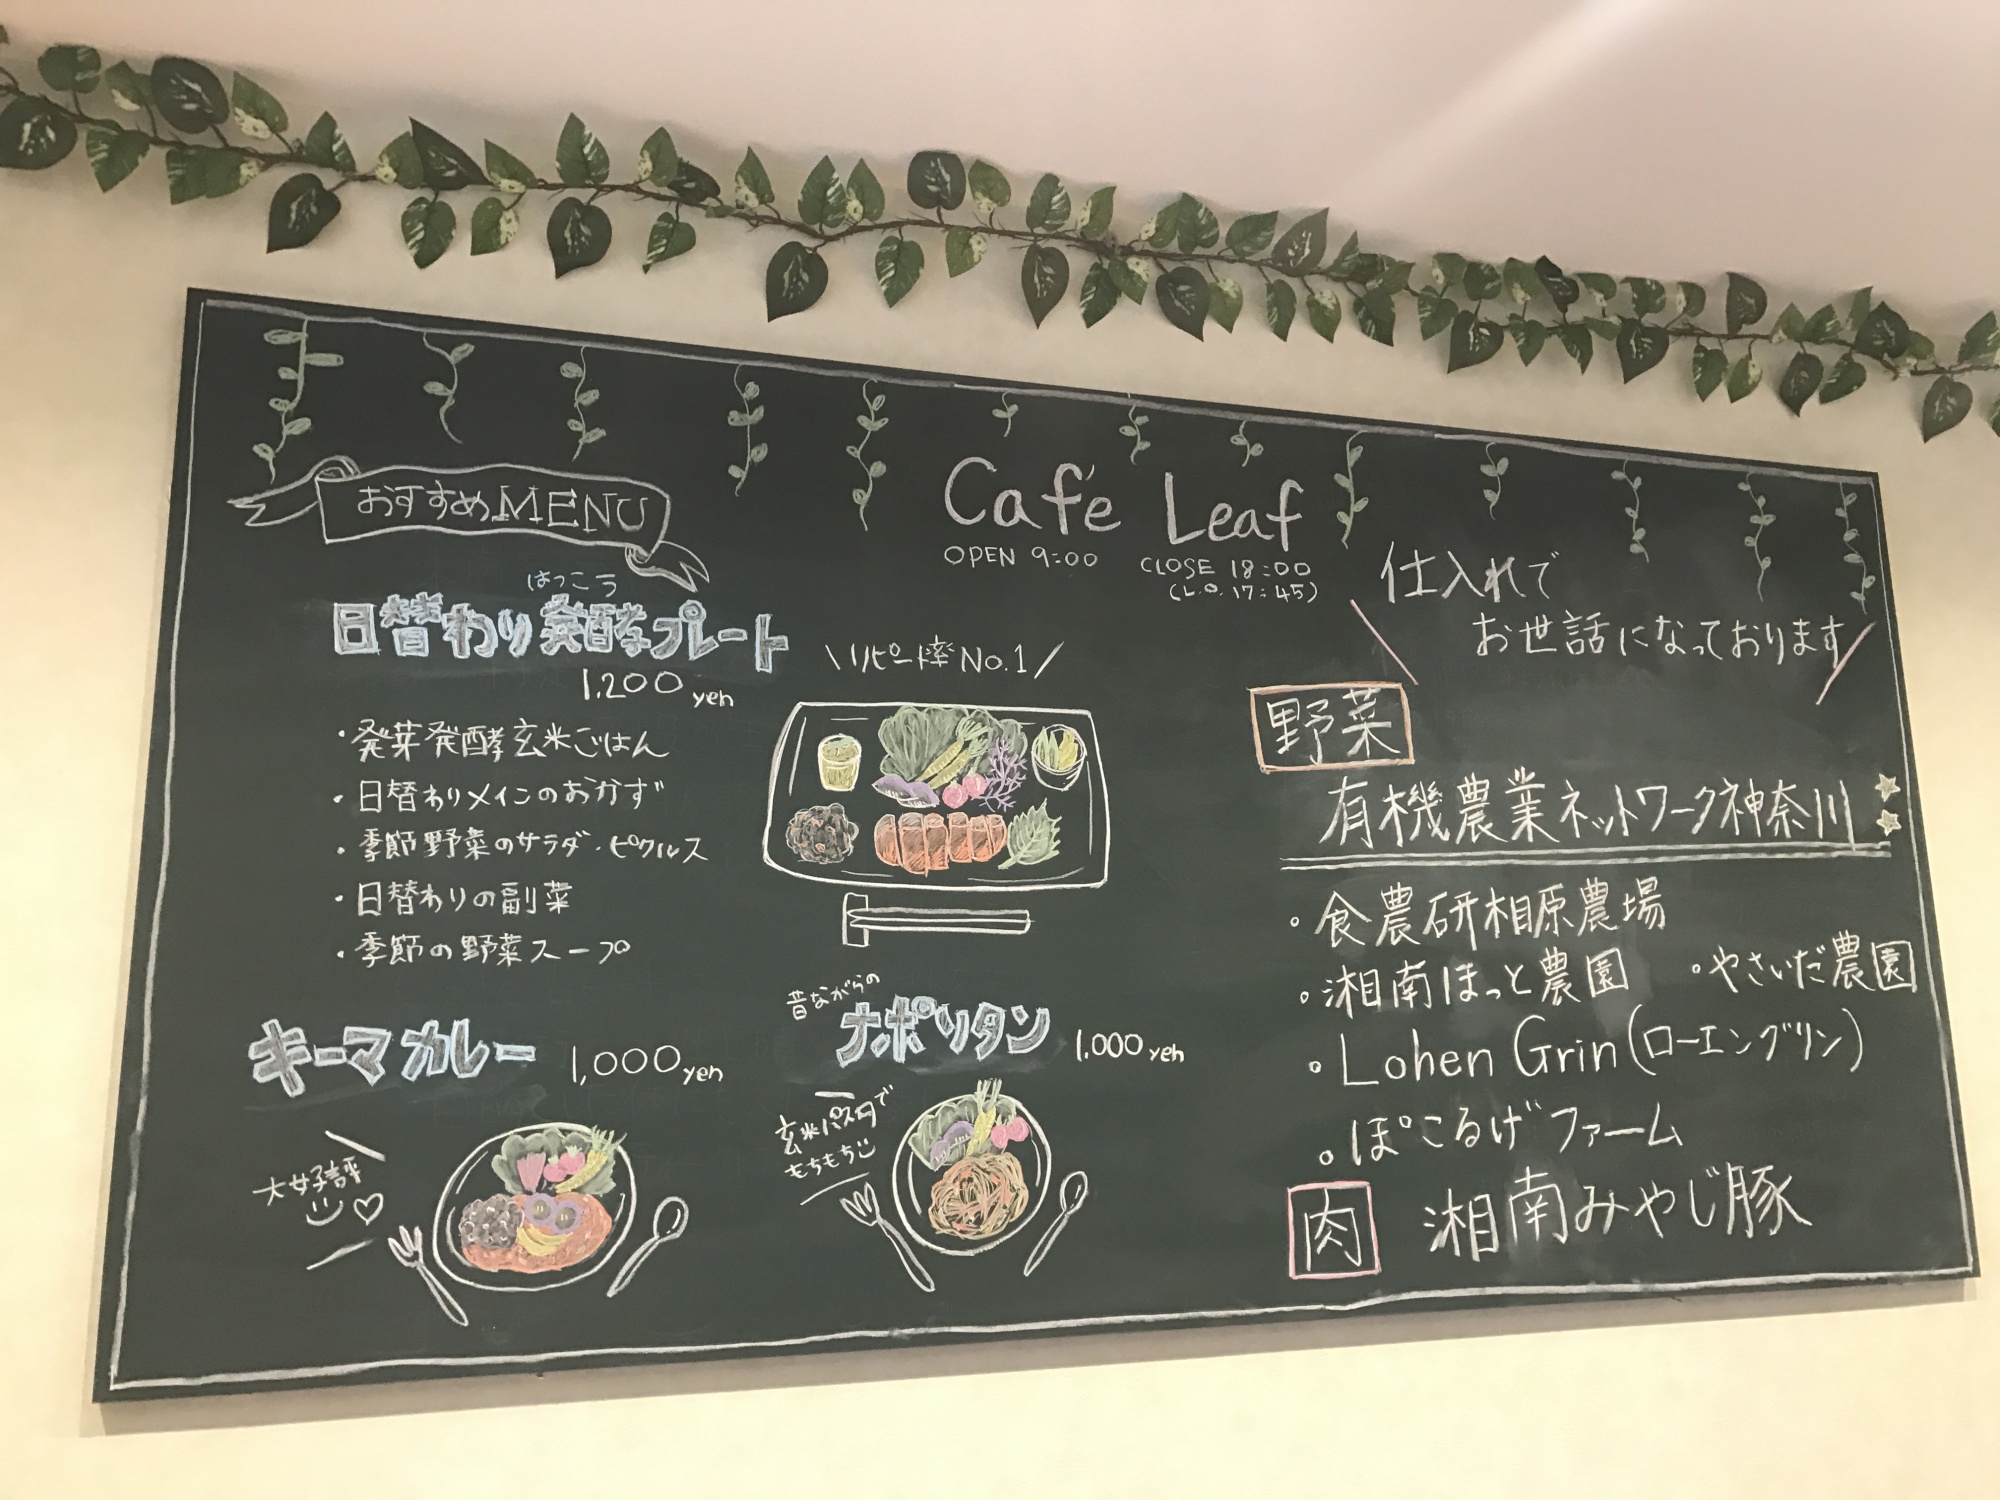 Café Leaf
OPEN 9:00 CLOSE 18:00
(L.O. 17:45)
おすすめMENU
はっこう
日替わり発酵プレート
1,200 yen
・発芽発酵玄米ごはん
・日替わりメインのおかず
・季節野菜のサラダ・ピクルス
・日替わりの副菜
・季節の野菜スープ
\リピート率No.1/
キーマカレー 1,000 yen
大好評
昔ながらの
ナポリタン 1,000 yen
玄米パスタで
もちもち
仕入れで
お世話になっております
野菜
有機農業ネットワーク神奈川
・食農研相原農場
・湘南ほっと農園 ・やさいだ農園
・Lohen Grin(ローエングリン)
・ぽこるげファーム
肉 湘南みやじ豚